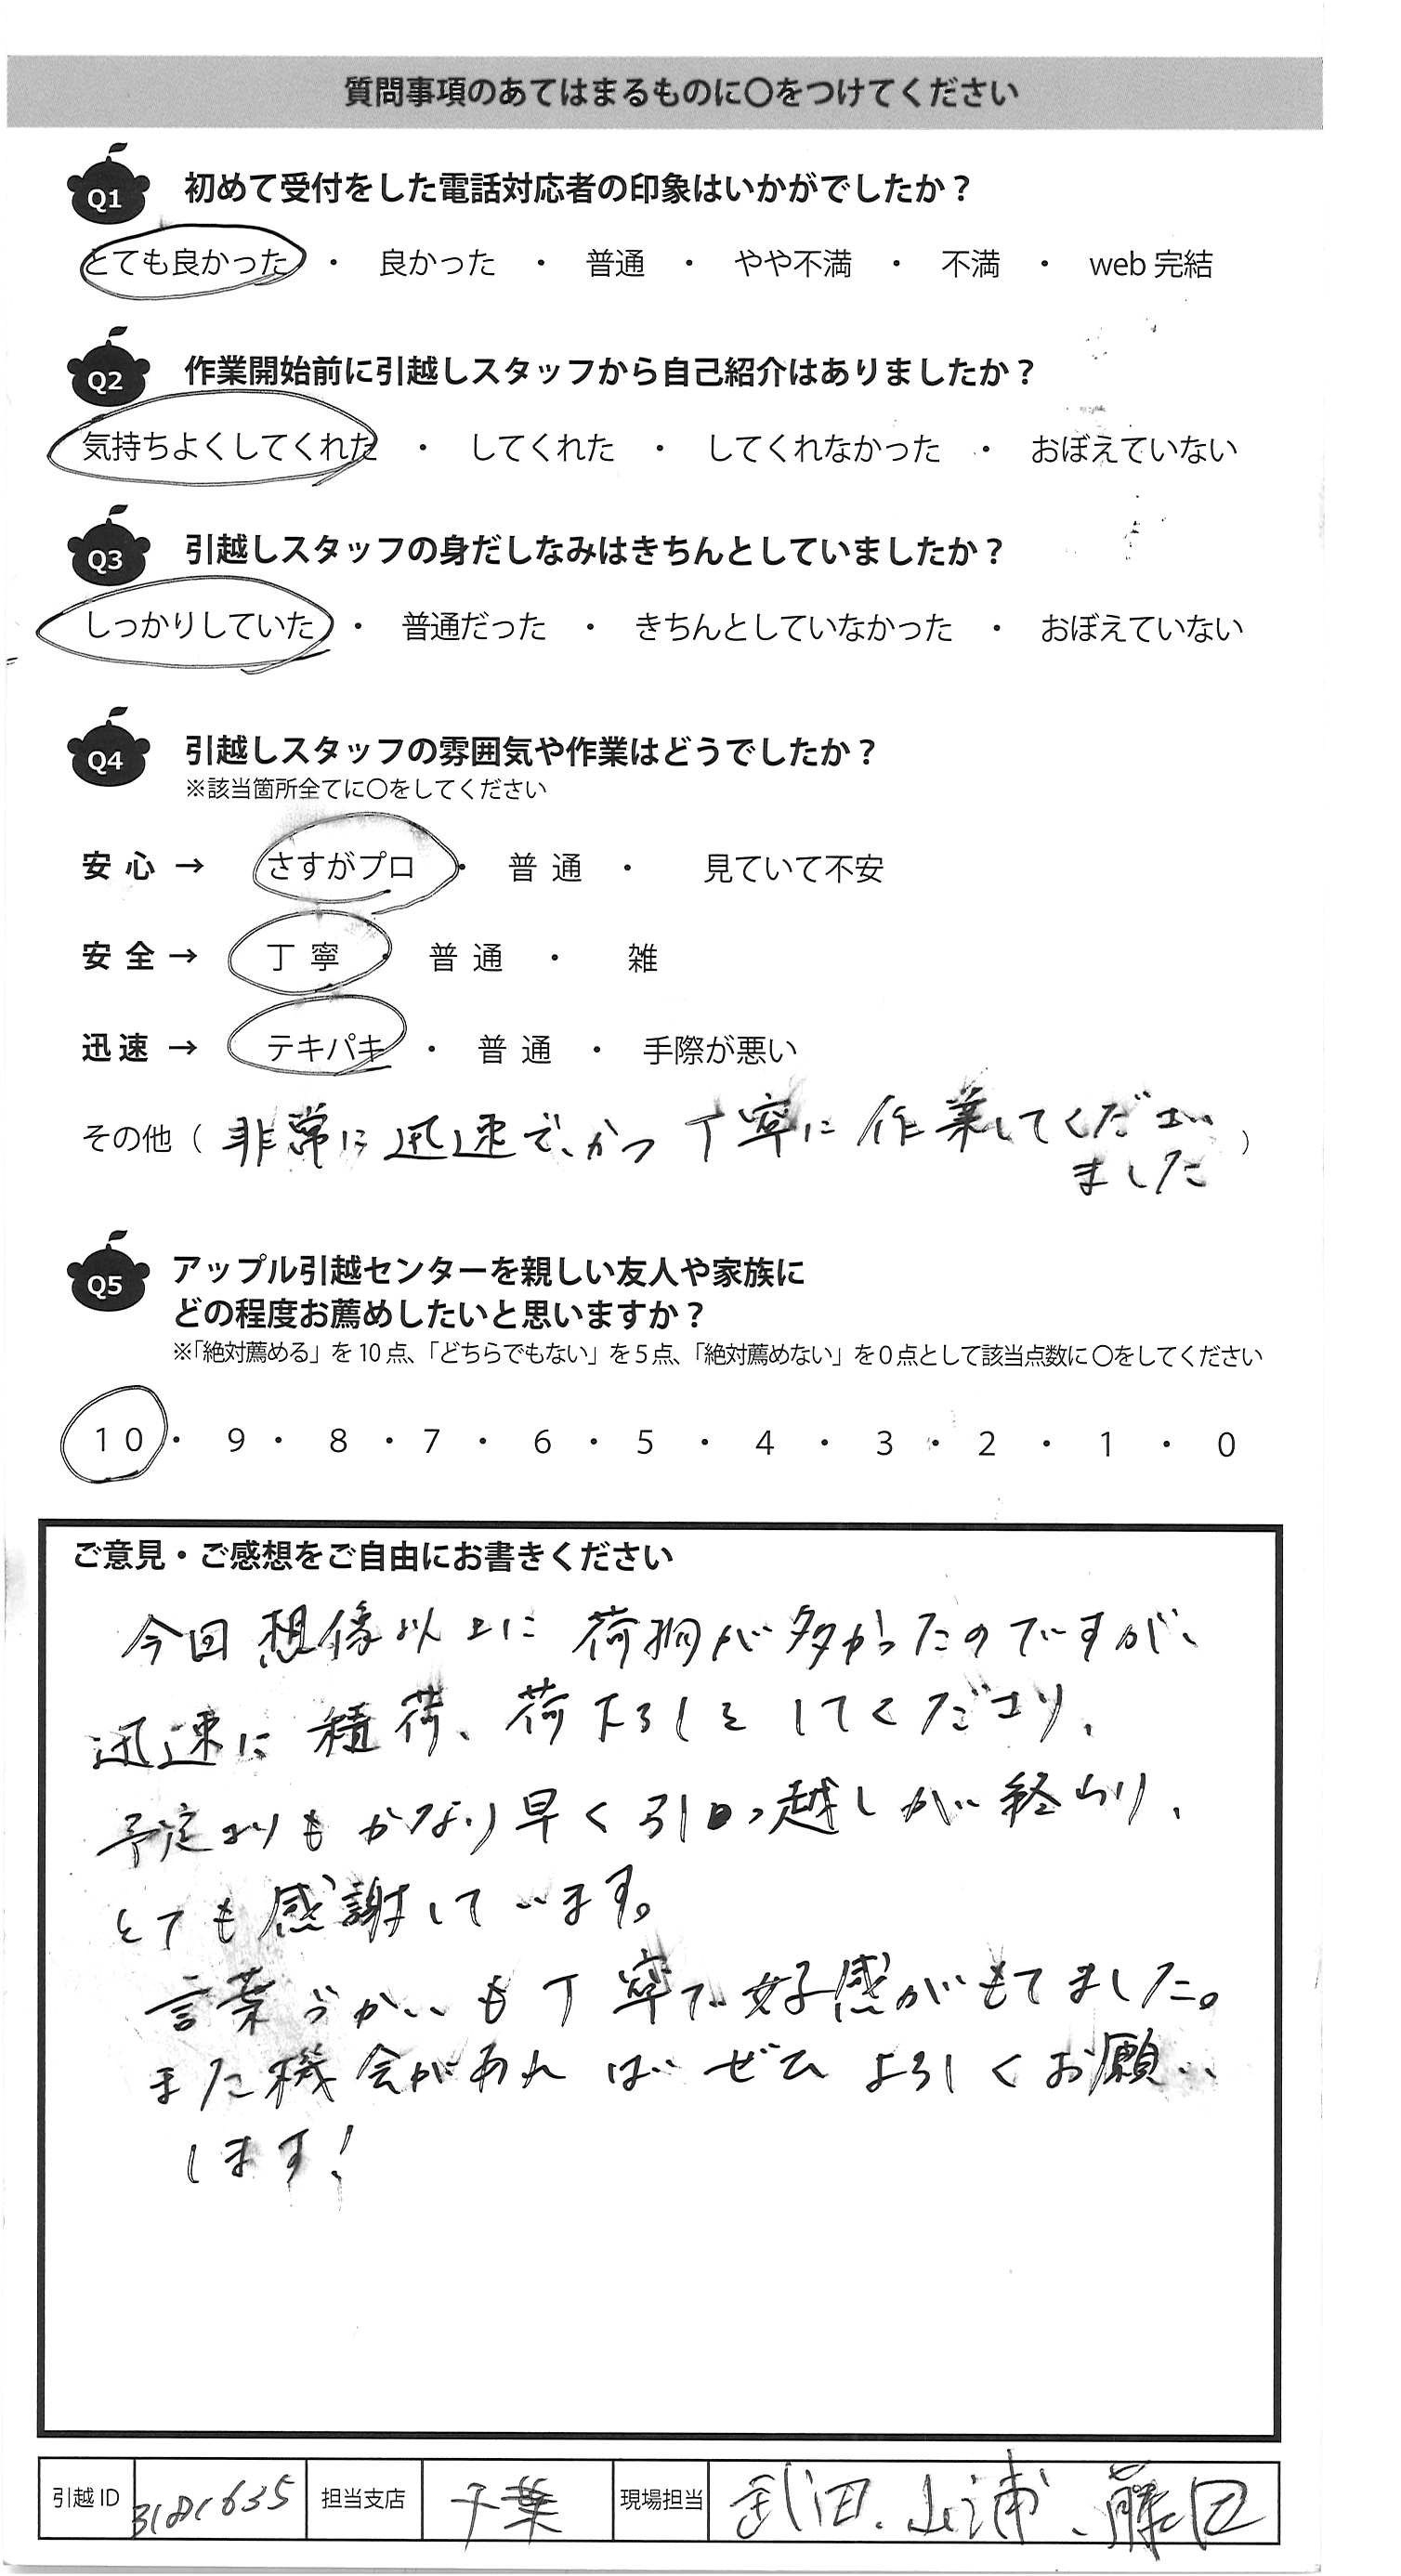 質問事項のあてはまるものに〇をつけてください
Q1 初めて受付をした電話対応者の印象はいかがでしたか？
とても良かった ・ 良かった ・ 普通 ・ やや不満 ・ 不満 ・ web 完結
Q2 作業開始前に引越しスタッフから自己紹介はありましたか？
気持ちよくしてくれた ・ してくれた ・ してくれなかった ・ おぼえていない
Q3 引越しスタッフの身だしなみはきちんとしていましたか？
しっかりしていた ・ 普通だった ・ きちんとしていなかった ・ おぼえていない
Q4 引越しスタッフの雰囲気や作業はどうでしたか？
※該当箇所全てに〇をしてください
安心 → さすがプロ ・ 普通 ・ 見ていて不安
安全 → 丁寧 ・ 普通 ・ 雑
迅速 → テキパキ ・ 普通 ・ 手際が悪い
その他（ 非常に迅速で、かつ丁寧に作業してください ）
ました
Q5 アップル引越センターを親しい友人や家族に
どの程度お薦めしたいと思いますか？
※「絶対薦める」を10点、「どちらでもない」を5点、「絶対薦めない」を0点として該当点数に〇をしてください
10 ・ 9 ・ 8 ・ 7 ・ 6 ・ 5 ・ 4 ・ 3 ・ 2 ・ 1 ・ 0
ご意見・ご感想をご自由にお書きください
今回想像以上に荷物が多かったのですが、
迅速に積荷、荷下ろしをしてくださり、
予定よりもかなり早く引っ越しが終わり、
とても感謝しています。
言葉づかいも丁寧で好感がもてました。
また機会があればぜひよろしくお願い
します！
引越ID 担当支店 千葉 現場担当 武田、山浦、藤田